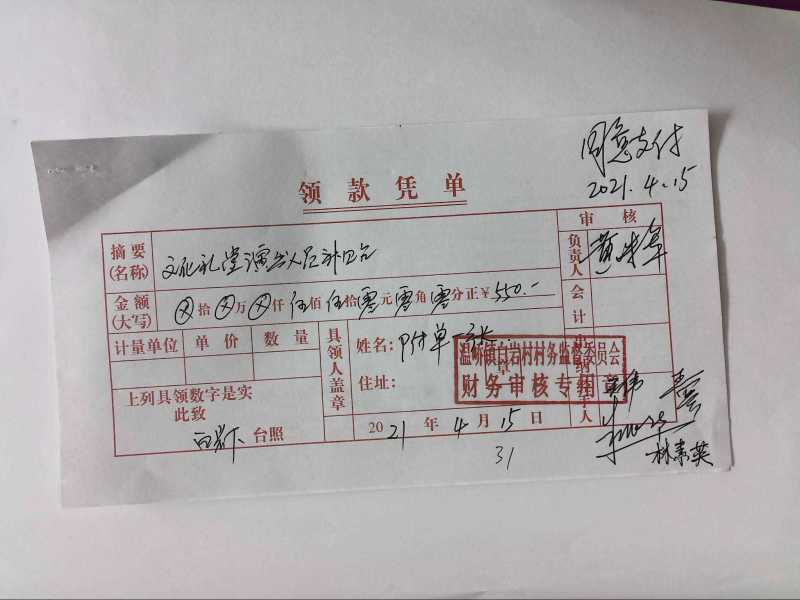 同意支付
2021.4.15
领款凭单
审核
摘要(名称) 文化礼堂演出人员补贴
负责人
金额(大写) ⊗拾⊗万⊗仟伍佰伍拾零元零角零分正¥550.-
会计
计量单位 单价 数量
具领人盖章
姓名: 附单一张
住址:
温峤镇白岩村村务监督委员会
财务审核专用章
上列具领数字是实
此致
台照
2021年4月15日
31
林素英